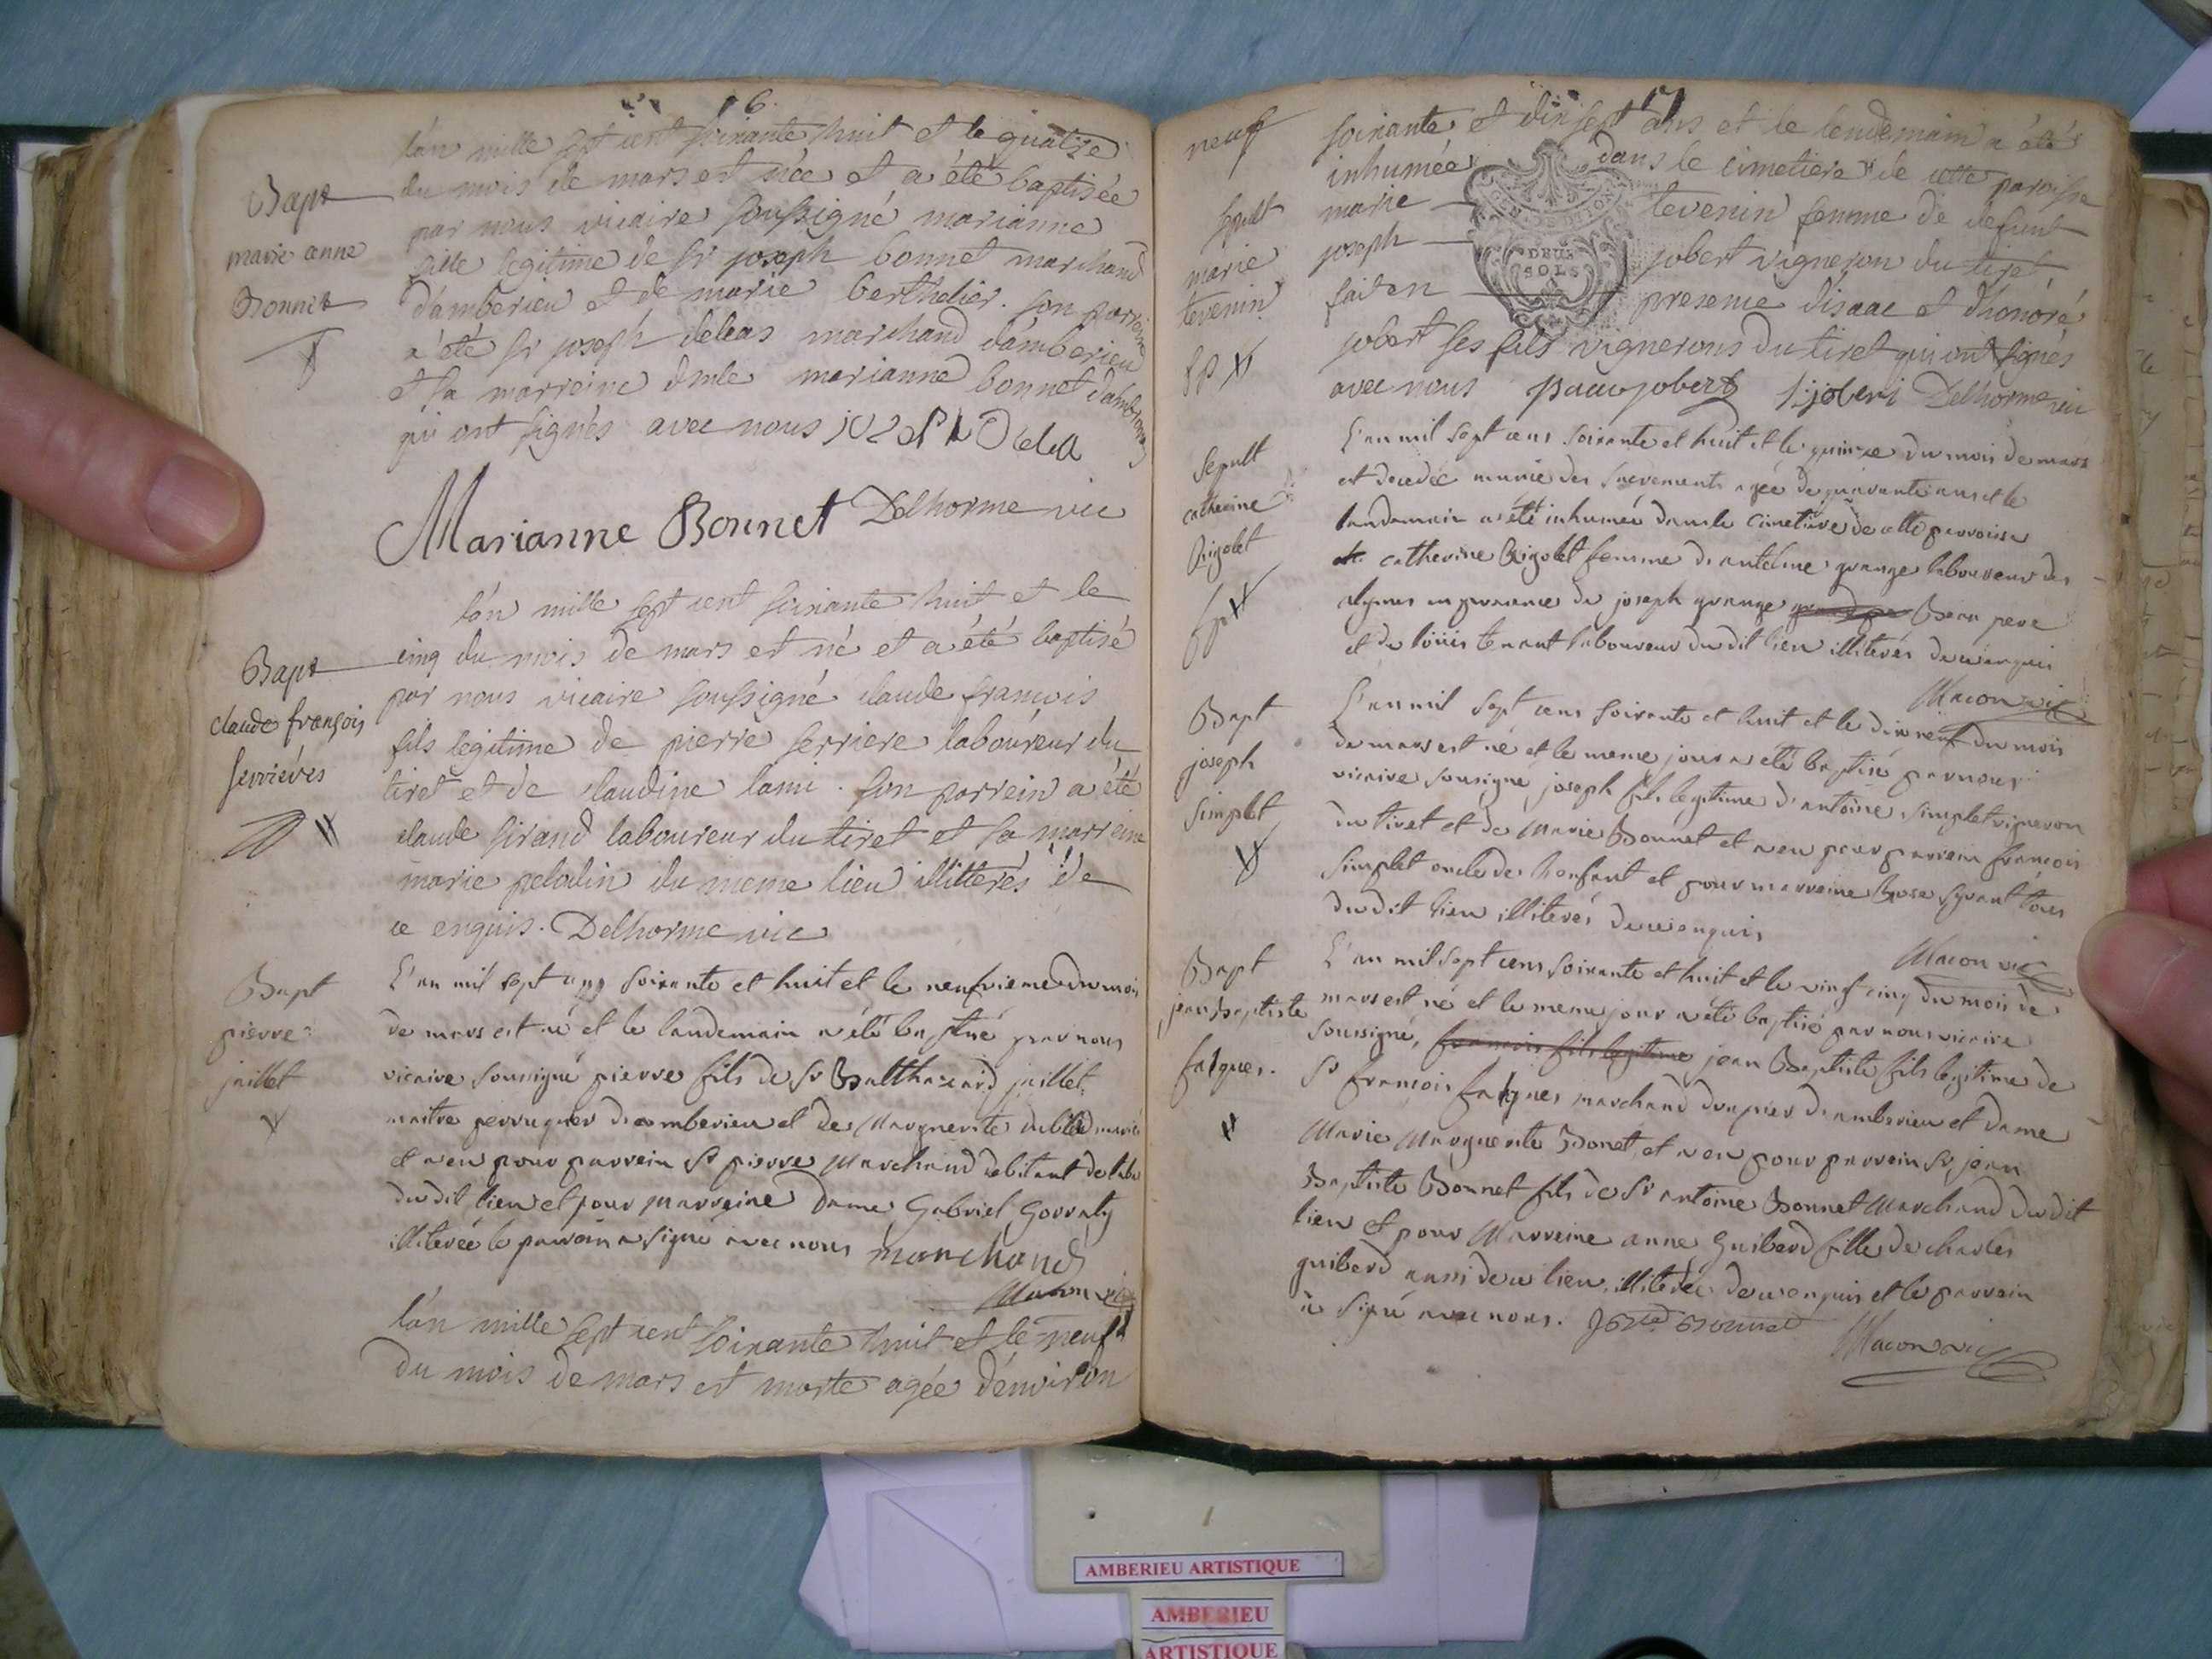 6.
Bapt
marie anne
Bonnet
l'an mille sept cent soixante huit et le quatre
du mois de mars est née et a été baptisée
par nous vicaire soussigné marianne
fille legitime de sr joseph bonnet marchand
d'amberieu et de marie berthelier. son parrein
a été sr joseph deleas marchand d'amberieu
et sa marreine dmle marianne bonnet
qui ont signés avec nous
Marianne Bonnet Delhorme vic
Bapt
claude françois
serrieres
l'an mille sept cent soixante huit et le
cinq du mois de mars est né et a été baptisé
par nous vicaire soussigné claude francois
fils legitime de pierre serriere laboureur du
tiret et de claudine lami. son parrein a été
claude sirand laboureur du tiret et sa marreine
marie peladin du meme lieu illitterés de
ce enquis. Delhorme vic
Bapt
pierre
juillet
L'an mil sept cens soixante et huit et le neufvieme du mois
de mars est né et le landemain a été baptisé par nous
vicaire soussigné pierre fils de sr Balthazard juillet
maitre perruquier d'amberieu et de Marguerite mariés
et a eu pour parrein sr pierre Marchand debitant de
du dit lieu et pour marreine Dame Gabriel Gorraty
illiterée le parrein a signé avec nous marchand
Macon vic
l'an mille sept cent soixante huit et le neuf
du mois de mars est morte agée d'environ
17
neuf
soixante et dix sept ans et le lendemain a été
inhumée dans le cimetiere de cette paroisse
marie tevenin femme de defunt
joseph jobert vigneron du tiret
fait en presence d'isaac et d'honoré
jobert ses fils vignerons du tiret qui ont signés
avec nous jobert jobert Delhorme vic
DEUX
SOLS
sepult
marie
tevenin
sepult
catherine
Rigolet
L'an mil sept cens soixante et huit et le quinze du mois de mars
est decedée munie des sacrements agée de quarante ans et le
landemain a été inhumée dans le cimetiere de cette parroisse
catherine Rigolet femme d'antelme grange laboureur des
alymes en presence de joseph grange Beau pere
et de loüis tenant laboureur du dit lieu illiterés de ce enquis
Macon vic
Bapt
joseph
simplet
L'an mil sept cens soixante et huit et le dix neuf du mois
de mars est né et le meme jour a été baptisé par nous
vicaire sousigné joseph fils legitime d'antoine simplet vigneron
du tiret et de Marie Bonnet et a eu pour parrein françois
simplet oncle de l'enfant et pour marreine Rose tous
du dit lieu illiterés de ce enquis
Macon vic
Bapt
jean baptiste
falques.
L'an mil sept cens soixante et huit et le vingt cinq du mois de
mars est né et le meme jour a été baptisé par nous vicaire
soussigné, francois fils legitime jean Baptiste fils legitime de
sr francois falques marchand drapier d'amberieu et dame
Marie Marguerite Bonet, et a eu pour parrein sr jean
Baptiste Bonnet fils de sr antoine Bonnet Marchand du dit
lieu et pour Marreine anne Guiberd fille de charles
guiberd aussi de ce lieu, illiterée de ce enquis et le parrein
a signé avec nous. Bonnet
Macon vic
AMBERIEU ARTISTIQUE
AMBERIEU
ARTISTIQUE